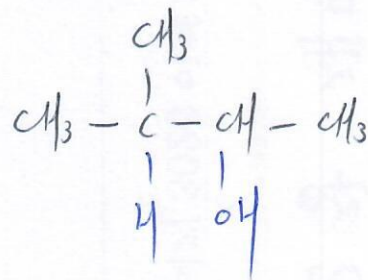 CH₃
CH₃ – C – CH – CH₃
H OH